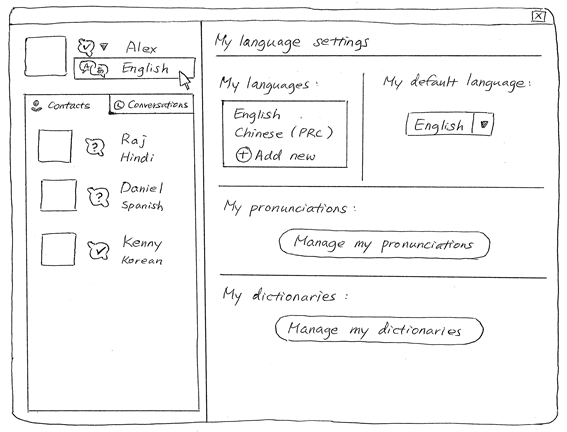 Alex
English
Contacts
Conversations
Raj
Hindi
Daniel
Spanish
Kenny
Korean
My language settings
My languages:
English
Chinese (PRC)
Add new
My default language:
English
My pronunciations:
Manage my pronunciations
My dictionaries:
Manage my dictionaries